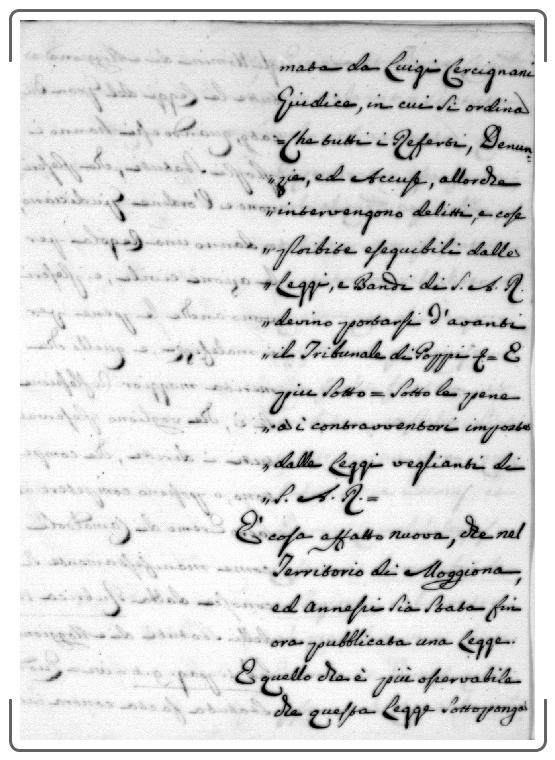 mata da Luigi Cercignani
Giudice, in cui si ordina
=Che tutti i Referti, Denun=
„zie, ed Accuse, allorche
„intervengono delitti, e cose
„proibite eseguibili dalle
„Leggi, e Bandi di S. A. R.
„devino portarsi d'avanti
„il Tribunale di Poppi &= E
più sotto= Sotto le pene
„a i contravventori imposte
„dalle Leggi veglianti di
„S. A. R.=
E' cosa affatto nuova, che nel
Territorio di Moggiona,
ed annessi sia stata fin
ora pubblicata una Legge.
E quello che è più osservabile
che questa Legge sottoponga